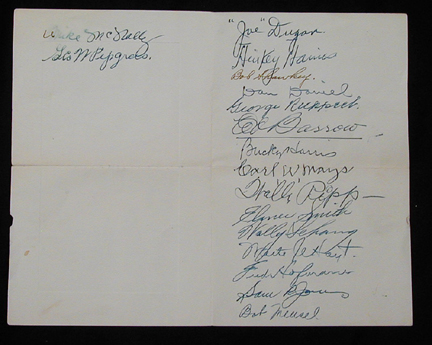 Mike McNally
Geo W Pipgras.
"Joe" Dugan
Hinkey Haines
Bob Shawkey.
Dan Daniel
George Ruppert
Ed Barrow
Bucky Harris
Carl W Mays
"Wally" Pipp
Elmer Smith
Wally Schang
Waite Hoyt.
Fred Hofmann
Sam Jones
Bob Meusel